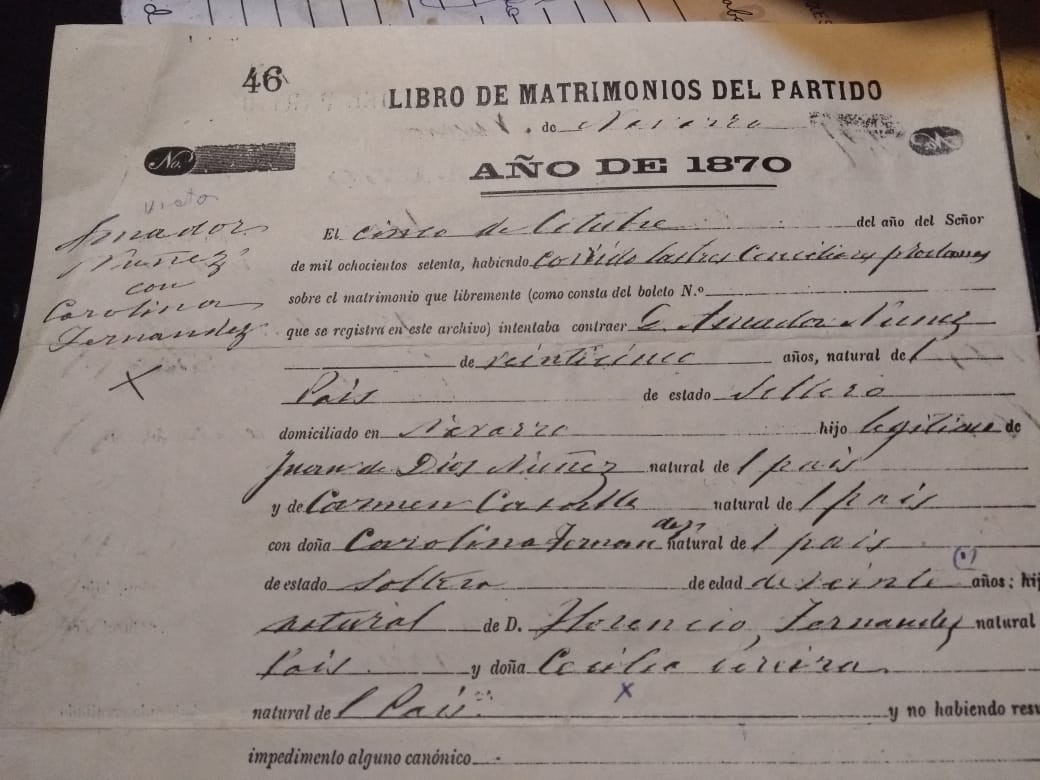 46
LIBRO DE MATRIMONIOS DEL PARTIDO
de Navarro
No.
AÑO DE 1870
visto
Amador
Nuñez
con
Carolina
Fernandez
El cinco de Octubre del año del Señor
de mil ochocientos setenta, habiendo corrido las tres Conciliares proclamas
sobre el matrimonio que libremente (como consta del boleto N.º
que se registra en este archivo) intentaba contraer D. Amador Nunez
de veinticinco años, natural del
Pais de estado soltero
domiciliado en Navarro hijo legitimo de
Juan de Dios Nuñez natural del pais
y de Carmen natural del pais
con doña Carolina Fernandez natural del pais
de estado soltera de edad de veinte años; hij
natural de D. Florencio Fernandez natural
Pais y doña Cecilia
natural del Pais y no habiendo resu
impedimento alguno canónico